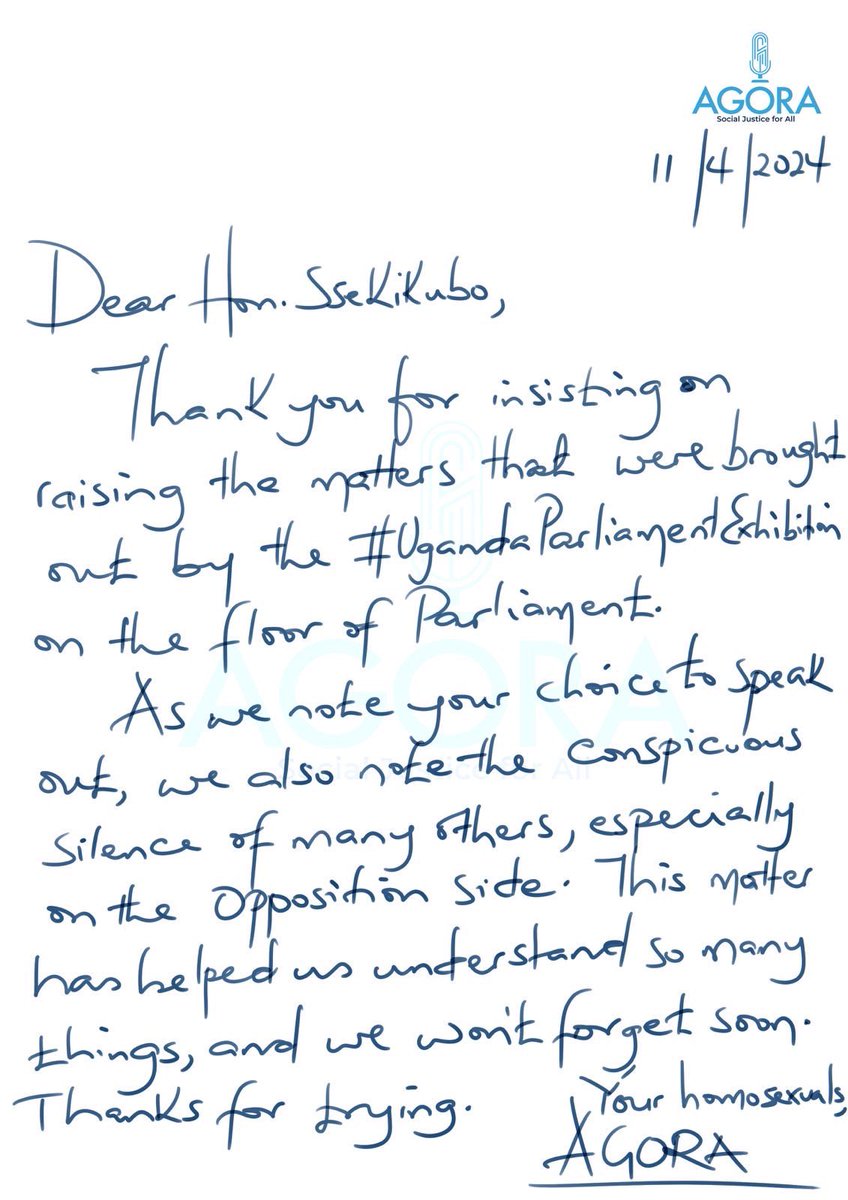 AGORA
Social Justice for All
11/4/2024
Dear Hon. Ssekikubo,
Thank you for insisting on
raising the matters that were brought
out by the #UgandaParliamentExhibition
on the floor of Parliament.
As we note your choice to speak
out, we also note the conspicuous
silence of many others, especially
on the Opposition side. This matter
has helped us understand so many
things, and we won't forget soon.
Thanks for trying.
Your homosexuals,
AGORA
AGORA
Social Justice for All